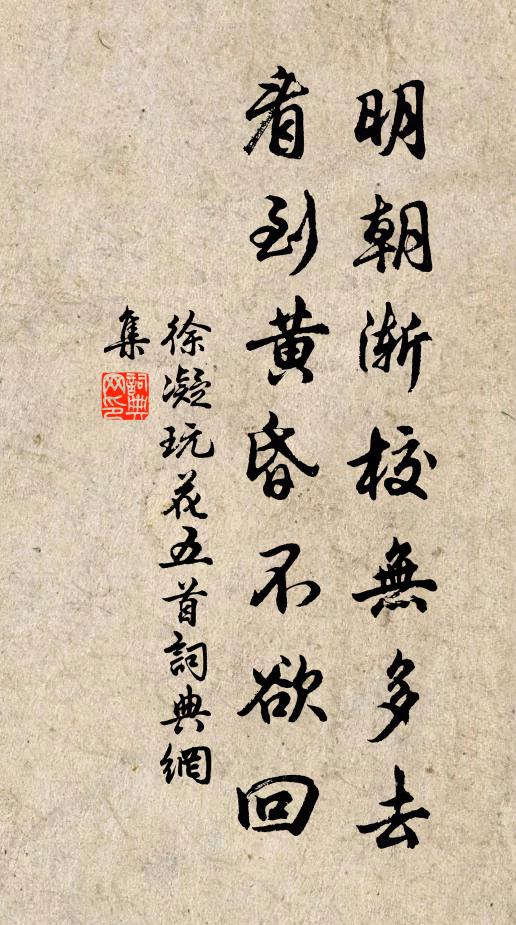 明朝漸校無多去
看到黃昏不欲回
徐凝玩花五首詞典網
集
詞典
网印